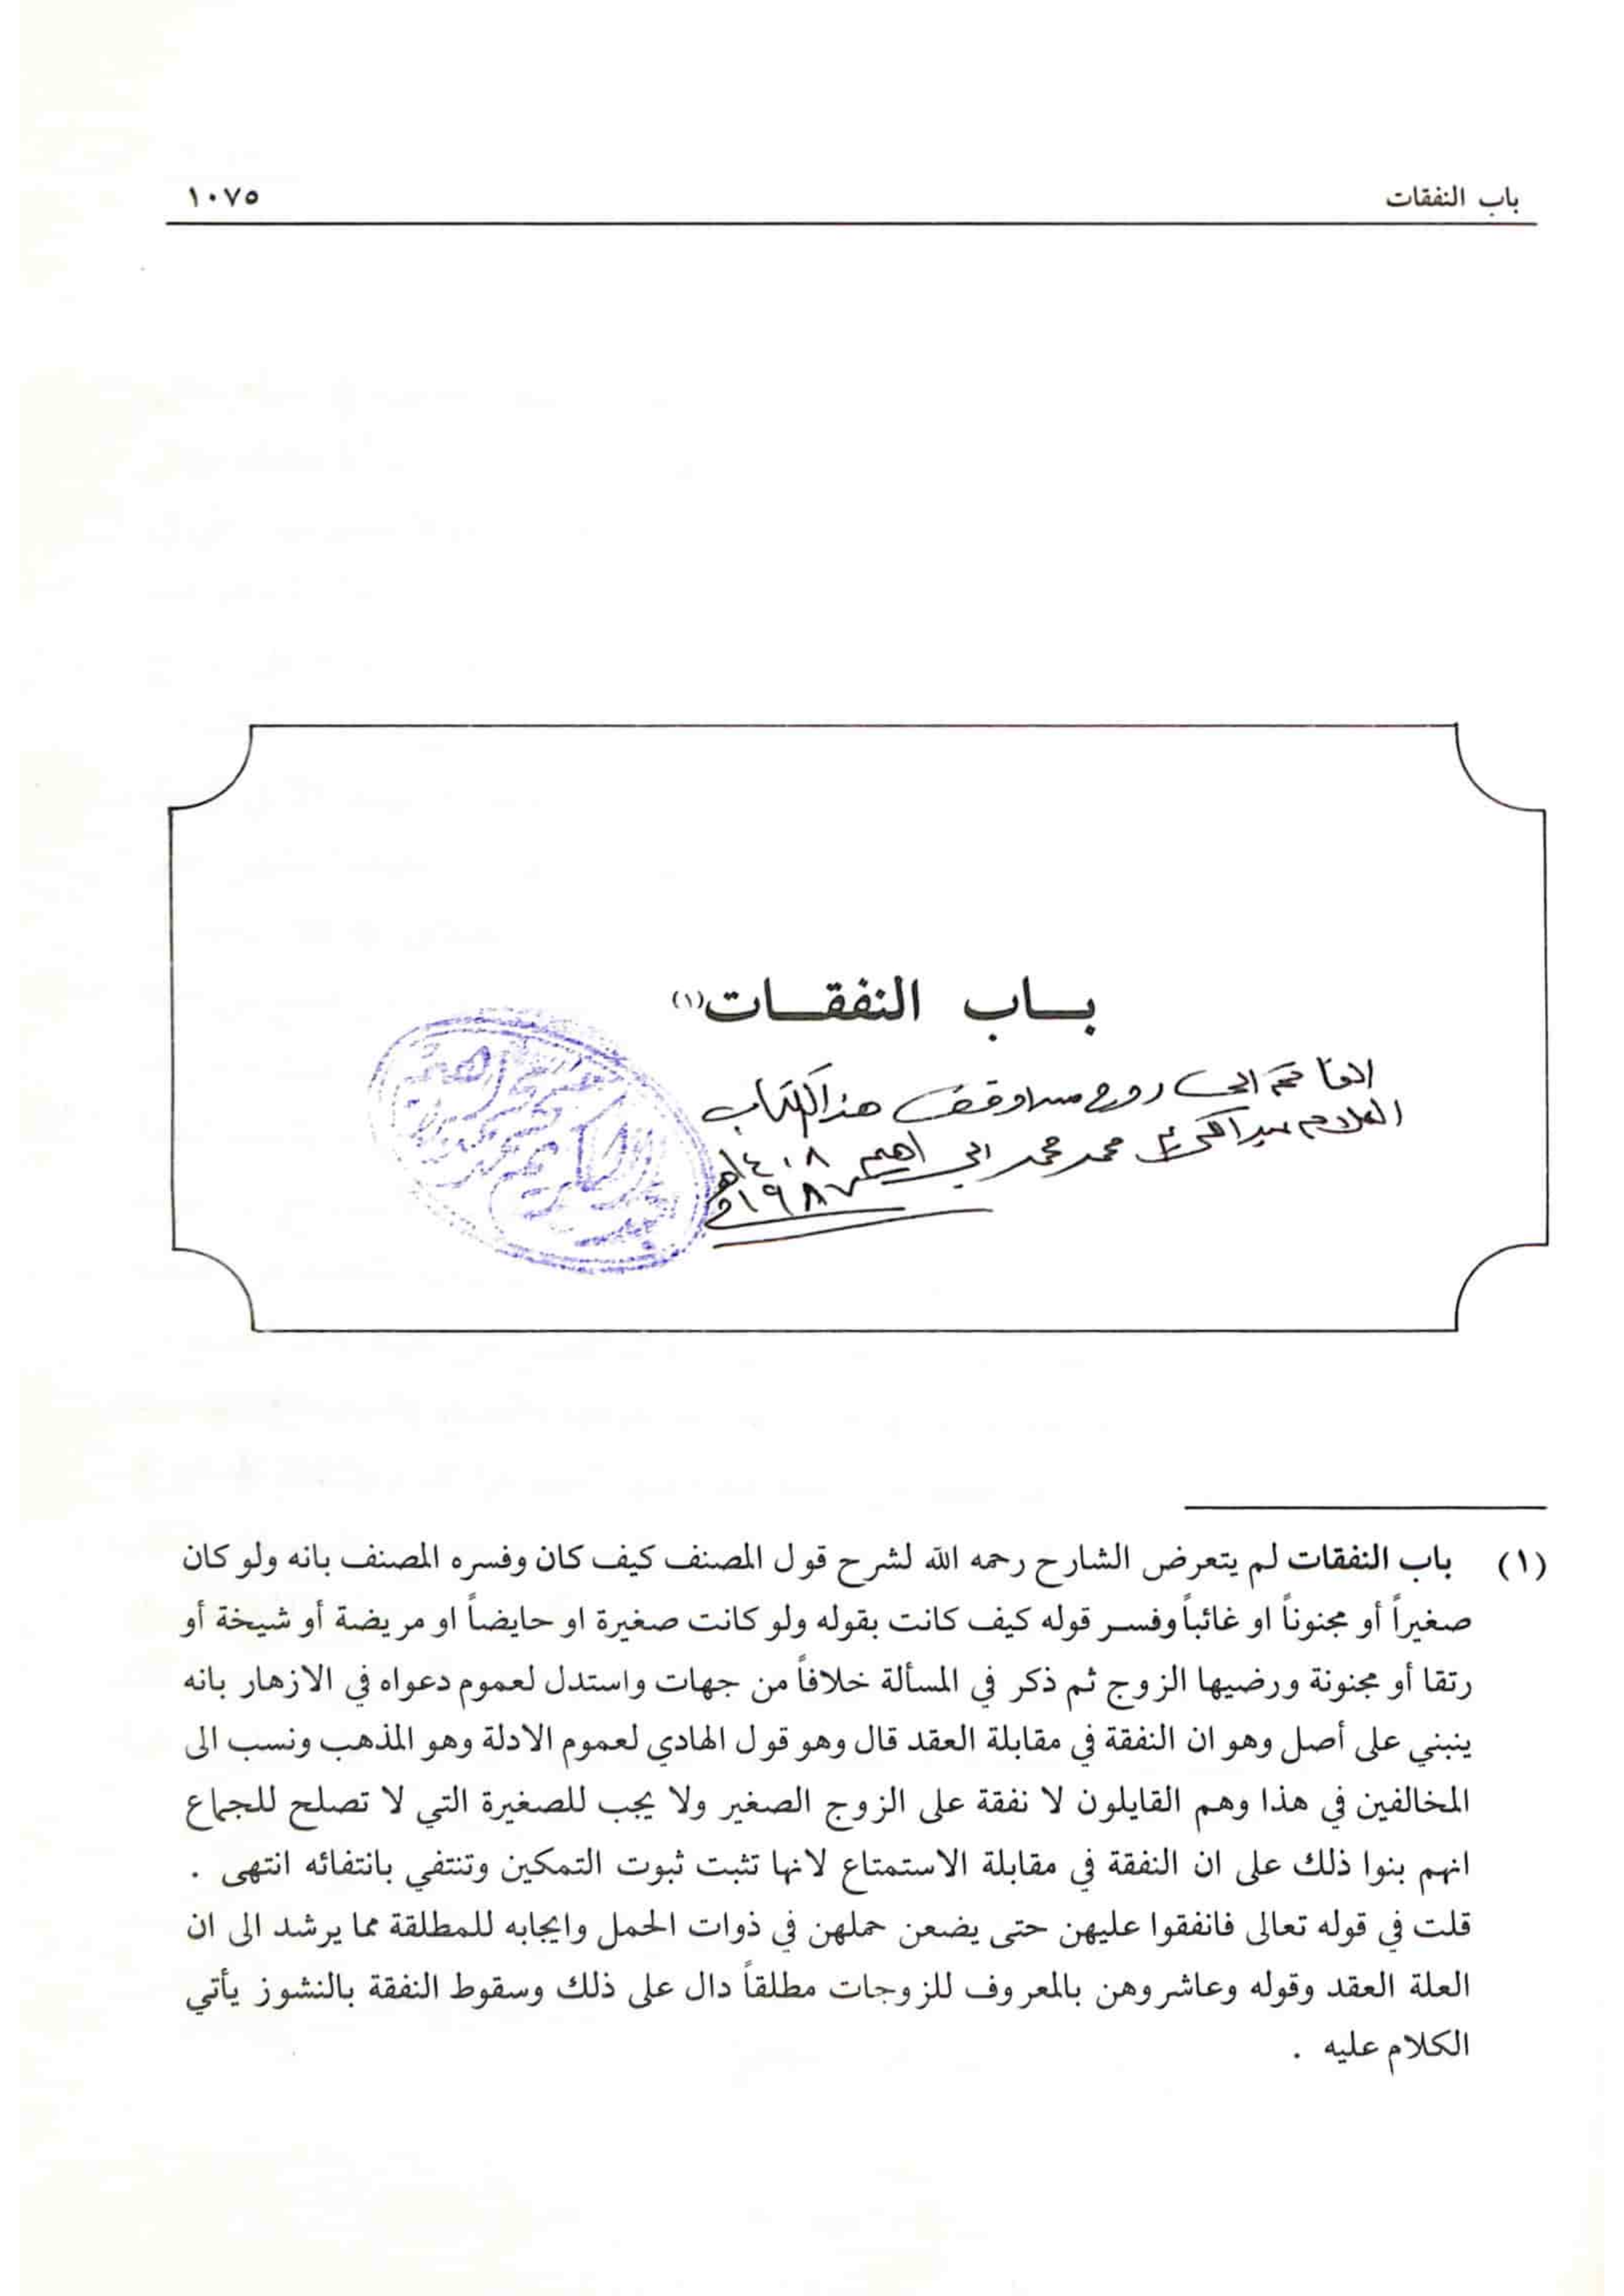 باب النفقات
١٠٧٥
بـاب النفقـات(١)
الفاتحة الى روح من اوقف هذا الكتاب
العلامه عبدالكريم محمد محمد ابراهيم ١٤٠٨هـ
١٩٨٧م
(١) باب النفقات لم يتعرض الشارح رحمه الله لشرح قول المصنف كيف كان وفسره المصنف بانه ولو كان
صغيراً أو مجنوناً او غائباً وفسر قوله كيف كانت بقوله ولو كانت صغيرة او حايضاً او مريضة أو شيخة أو
رتقا أو مجنونة ورضيها الزوج ثم ذكر في المسألة خلافاً من جهات واستدل لعموم دعواه في الازهار بانه
ينبني على أصل وهو ان النفقة في مقابلة العقد قال وهو قول الهادي لعموم الادلة وهو المذهب ونسب الى
المخالفين في هذا وهم القايلون لا نفقة على الزوج الصغير ولا يجب للصغيرة التي لا تصلح للجماع
انهم بنوا ذلك على ان النفقة في مقابلة الاستمتاع لانها تثبت ثبوت التمكين وتنتفي بانتفائه انتهى .
قلت في قوله تعالى فانفقوا عليهن حتى يضعن حملهن في ذوات الحمل وايجابه للمطلقة مما يرشد الى ان
العلة العقد وقوله وعاشروهن بالمعروف للزوجات مطلقاً دال على ذلك وسقوط النفقة بالنشوز يأتي
الكلام عليه .